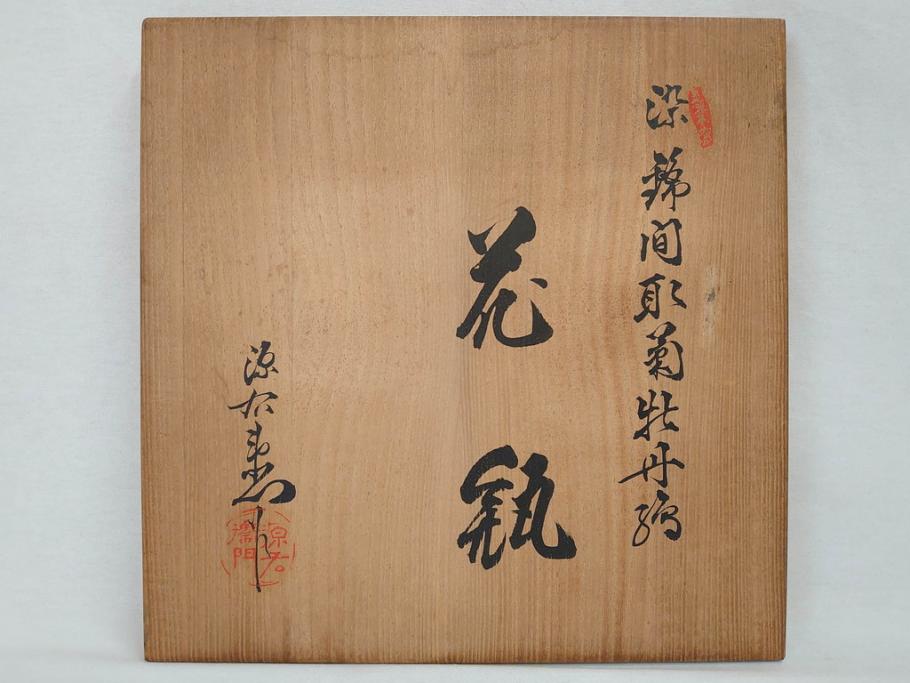 染錦間取菊牡丹絵
花瓶
源右衛門作
源右
衛門